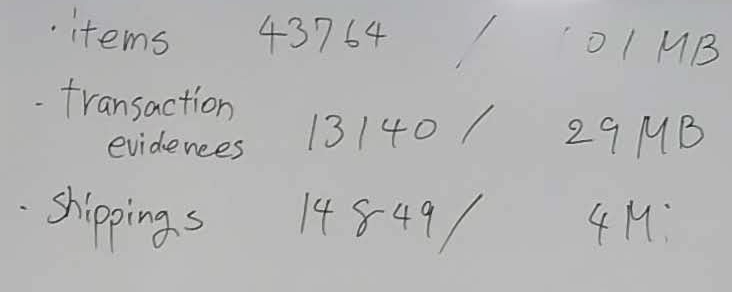 · items 43764 / 01 MB
- transaction
evidences 13140 / 29 MB
· Shippings 14849 / 4 M